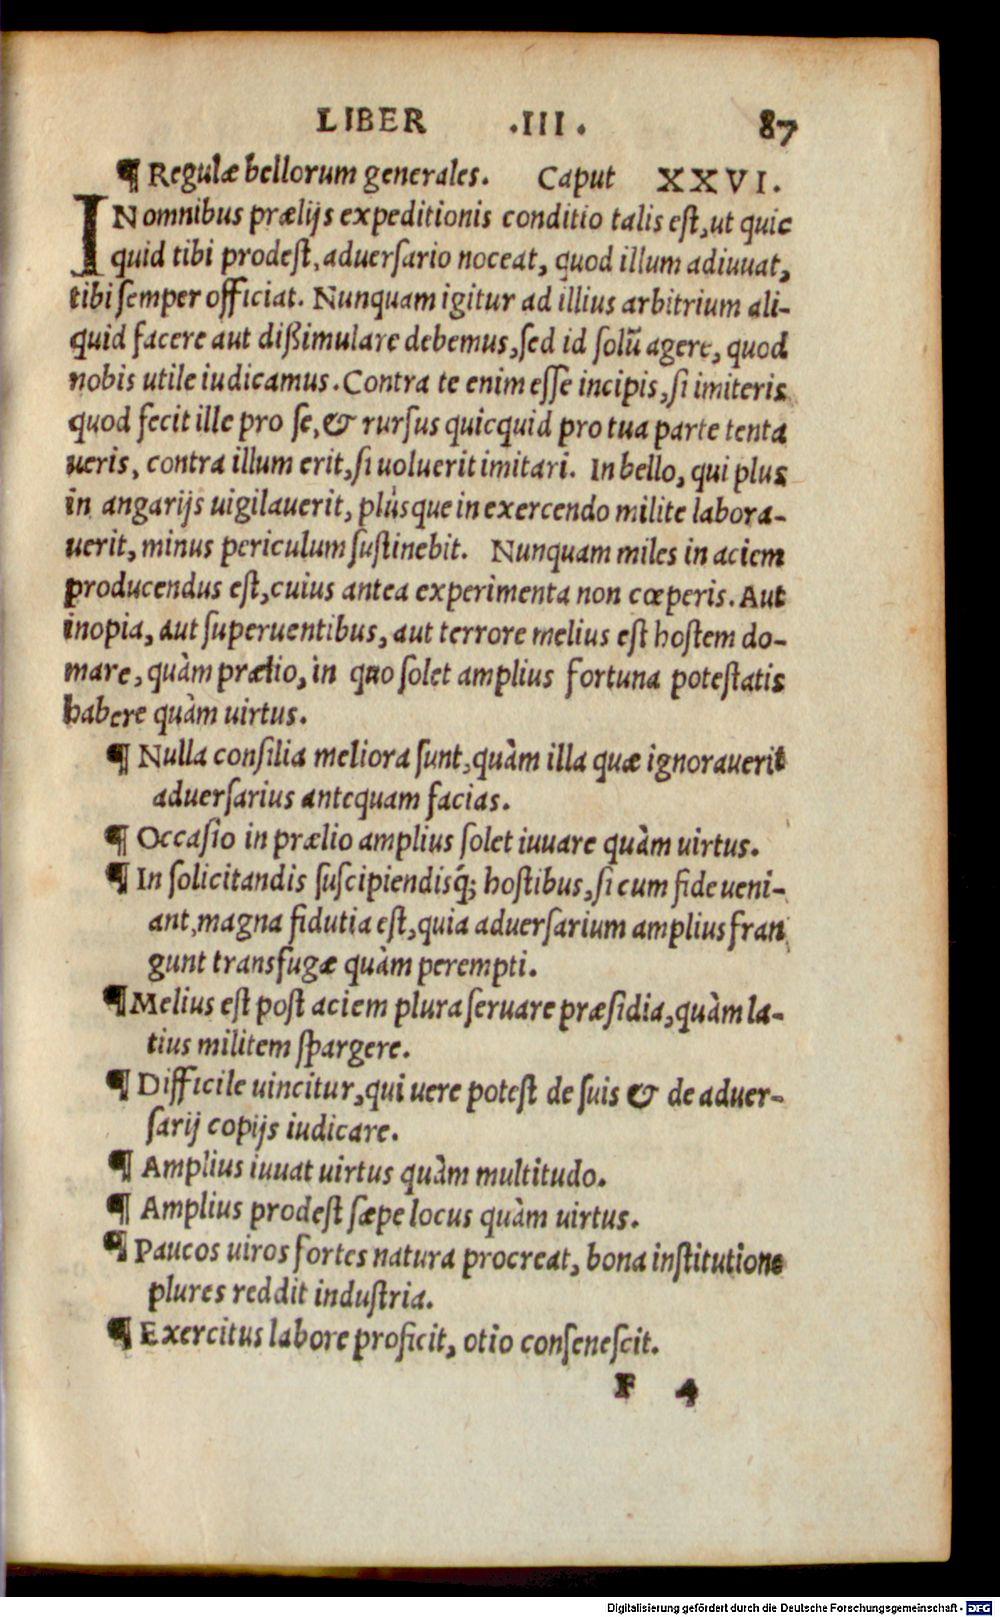 LIBER .III. 87
¶ Regulæ bellorum generales. Caput XXVI.
IN omnibus prælijs expeditionis conditio talis est, ut quic
quid tibi prodest, aduersario noceat, quod illum adiuuat,
tibi semper officiat. Nunquam igitur ad illius arbitrium ali-
quid facere aut dißimulare debemus, sed id solũ agere, quod
nobis utile iudicamus. Contra te enim esse incipis, si imiteris
quod fecit ille pro se, & rursus quicquid pro tua parte tenta
ueris, contra illum erit, si uoluerit imitari. In bello, qui plus
in angarijs uigilauerit, plùsque in exercendo milite labora-
uerit, minus periculum sustinebit. Nunquam miles in aciem
producendus est, cuius antea experimenta non cœperis. Aut
inopia, aut superuentibus, aut terrore melius est hostem do-
mare, quàm prælio, in quo solet amplius fortuna potestatis
habere quàm uirtus.
¶ Nulla consilia meliora sunt, quàm illa quæ ignorauerit
aduersarius antequam facias.
¶ Occasio in prælio amplius solet iuuare quàm uirtus.
¶ In solicitandis suscipiendisq́; hostibus, si cum fide ueni-
ant, magna fidutia est, quia aduersarium amplius fran
gunt transfugæ quàm perempti.
¶ Melius est post aciem plura seruare præsidia, quàm la-
tius militem spargere.
¶ Difficile uincitur, qui uere potest de suis & de aduer-
sarij copijs iudicare.
¶ Amplius iuuat uirtus quàm multitudo.
¶ Amplius prodest sæpe locus quàm uirtus.
¶ Paucos uiros fortes natura procreat, bona institutione
plures reddit industria.
¶ Exercitus labore proficit, otio consenescit.
F 4
Digitalisierung gefördert durch die Deutsche Forschungsgemeinschaft - DFG